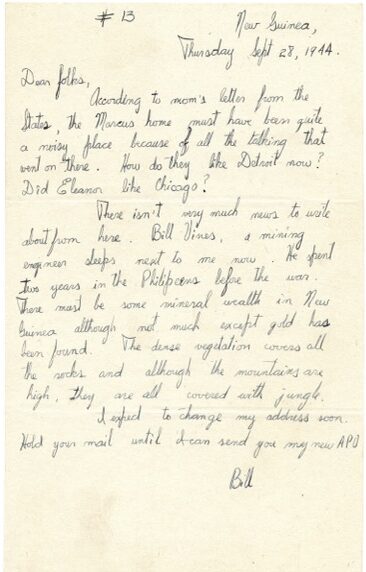 # 13
New Guinea,
Thursday Sept 28, 1944.
Dear folks,
According to mom's letter from the
States, the Marcus home must have been quite
a noisy place because of all the talking that
went on there. How do they like Detroit now?
Did Eleanor like Chicago?
There isn't very much news to write
about from here. Bill Vines, a mining
engineer sleeps next to me now. He spent
two years in the Philipeens before the war.
There must be some mineral wealth in New
Guinea although not much except gold has
been found. The dense vegetation covers all
the rocks and although the mountains are
high, they are all covered with jungle.
I expect to change my address soon.
Hold your mail until I can send you my new APO
Bill